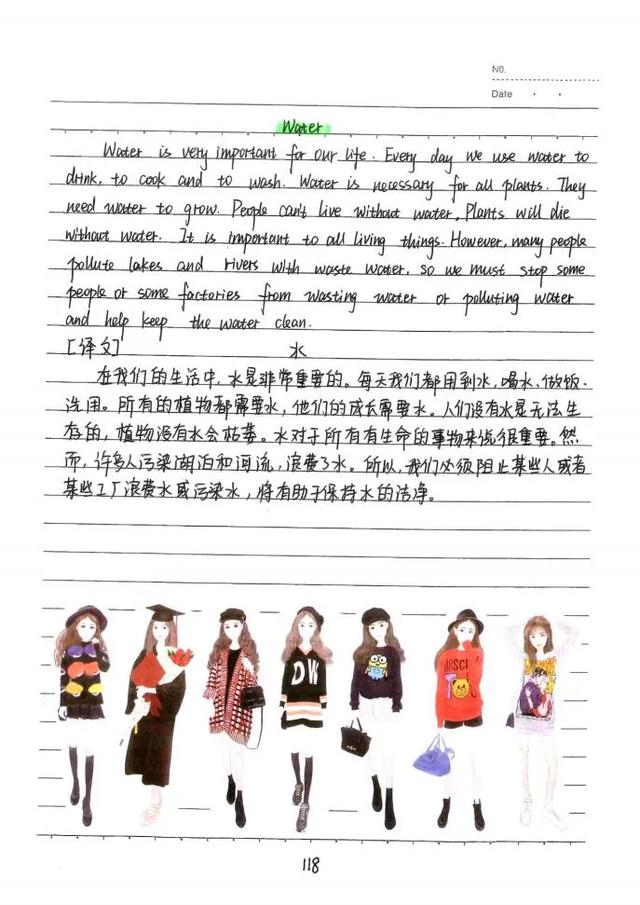 NO.
Date
Water
Water is very important for our life. Every day we use water to
drink, to cook and to wash. Water is necessary for all plants. They
need water to grow. People can't live without water, Plants will die
without water. It is important to all living things. However, many people
pollute lakes and rivers with waste water, so we must stop some
people or some factories from wasting water or polluting water
and help keep the water clean.
[译文] 水
在我们的生活中,水是非常重要的。每天我们都用到水,喝水、做饭、
洗用。所有的植物都需要水,他们的成长需要水。人们没有水是无法生
存的,植物没有水会枯萎。水对于所有有生命的事物来说很重要。然
而,许多人污染湖泊和河流,浪费了水。所以,我们必须阻止某些人或者
某些工厂浪费水或污染水,将有助于保持水的洁净。
DW
118